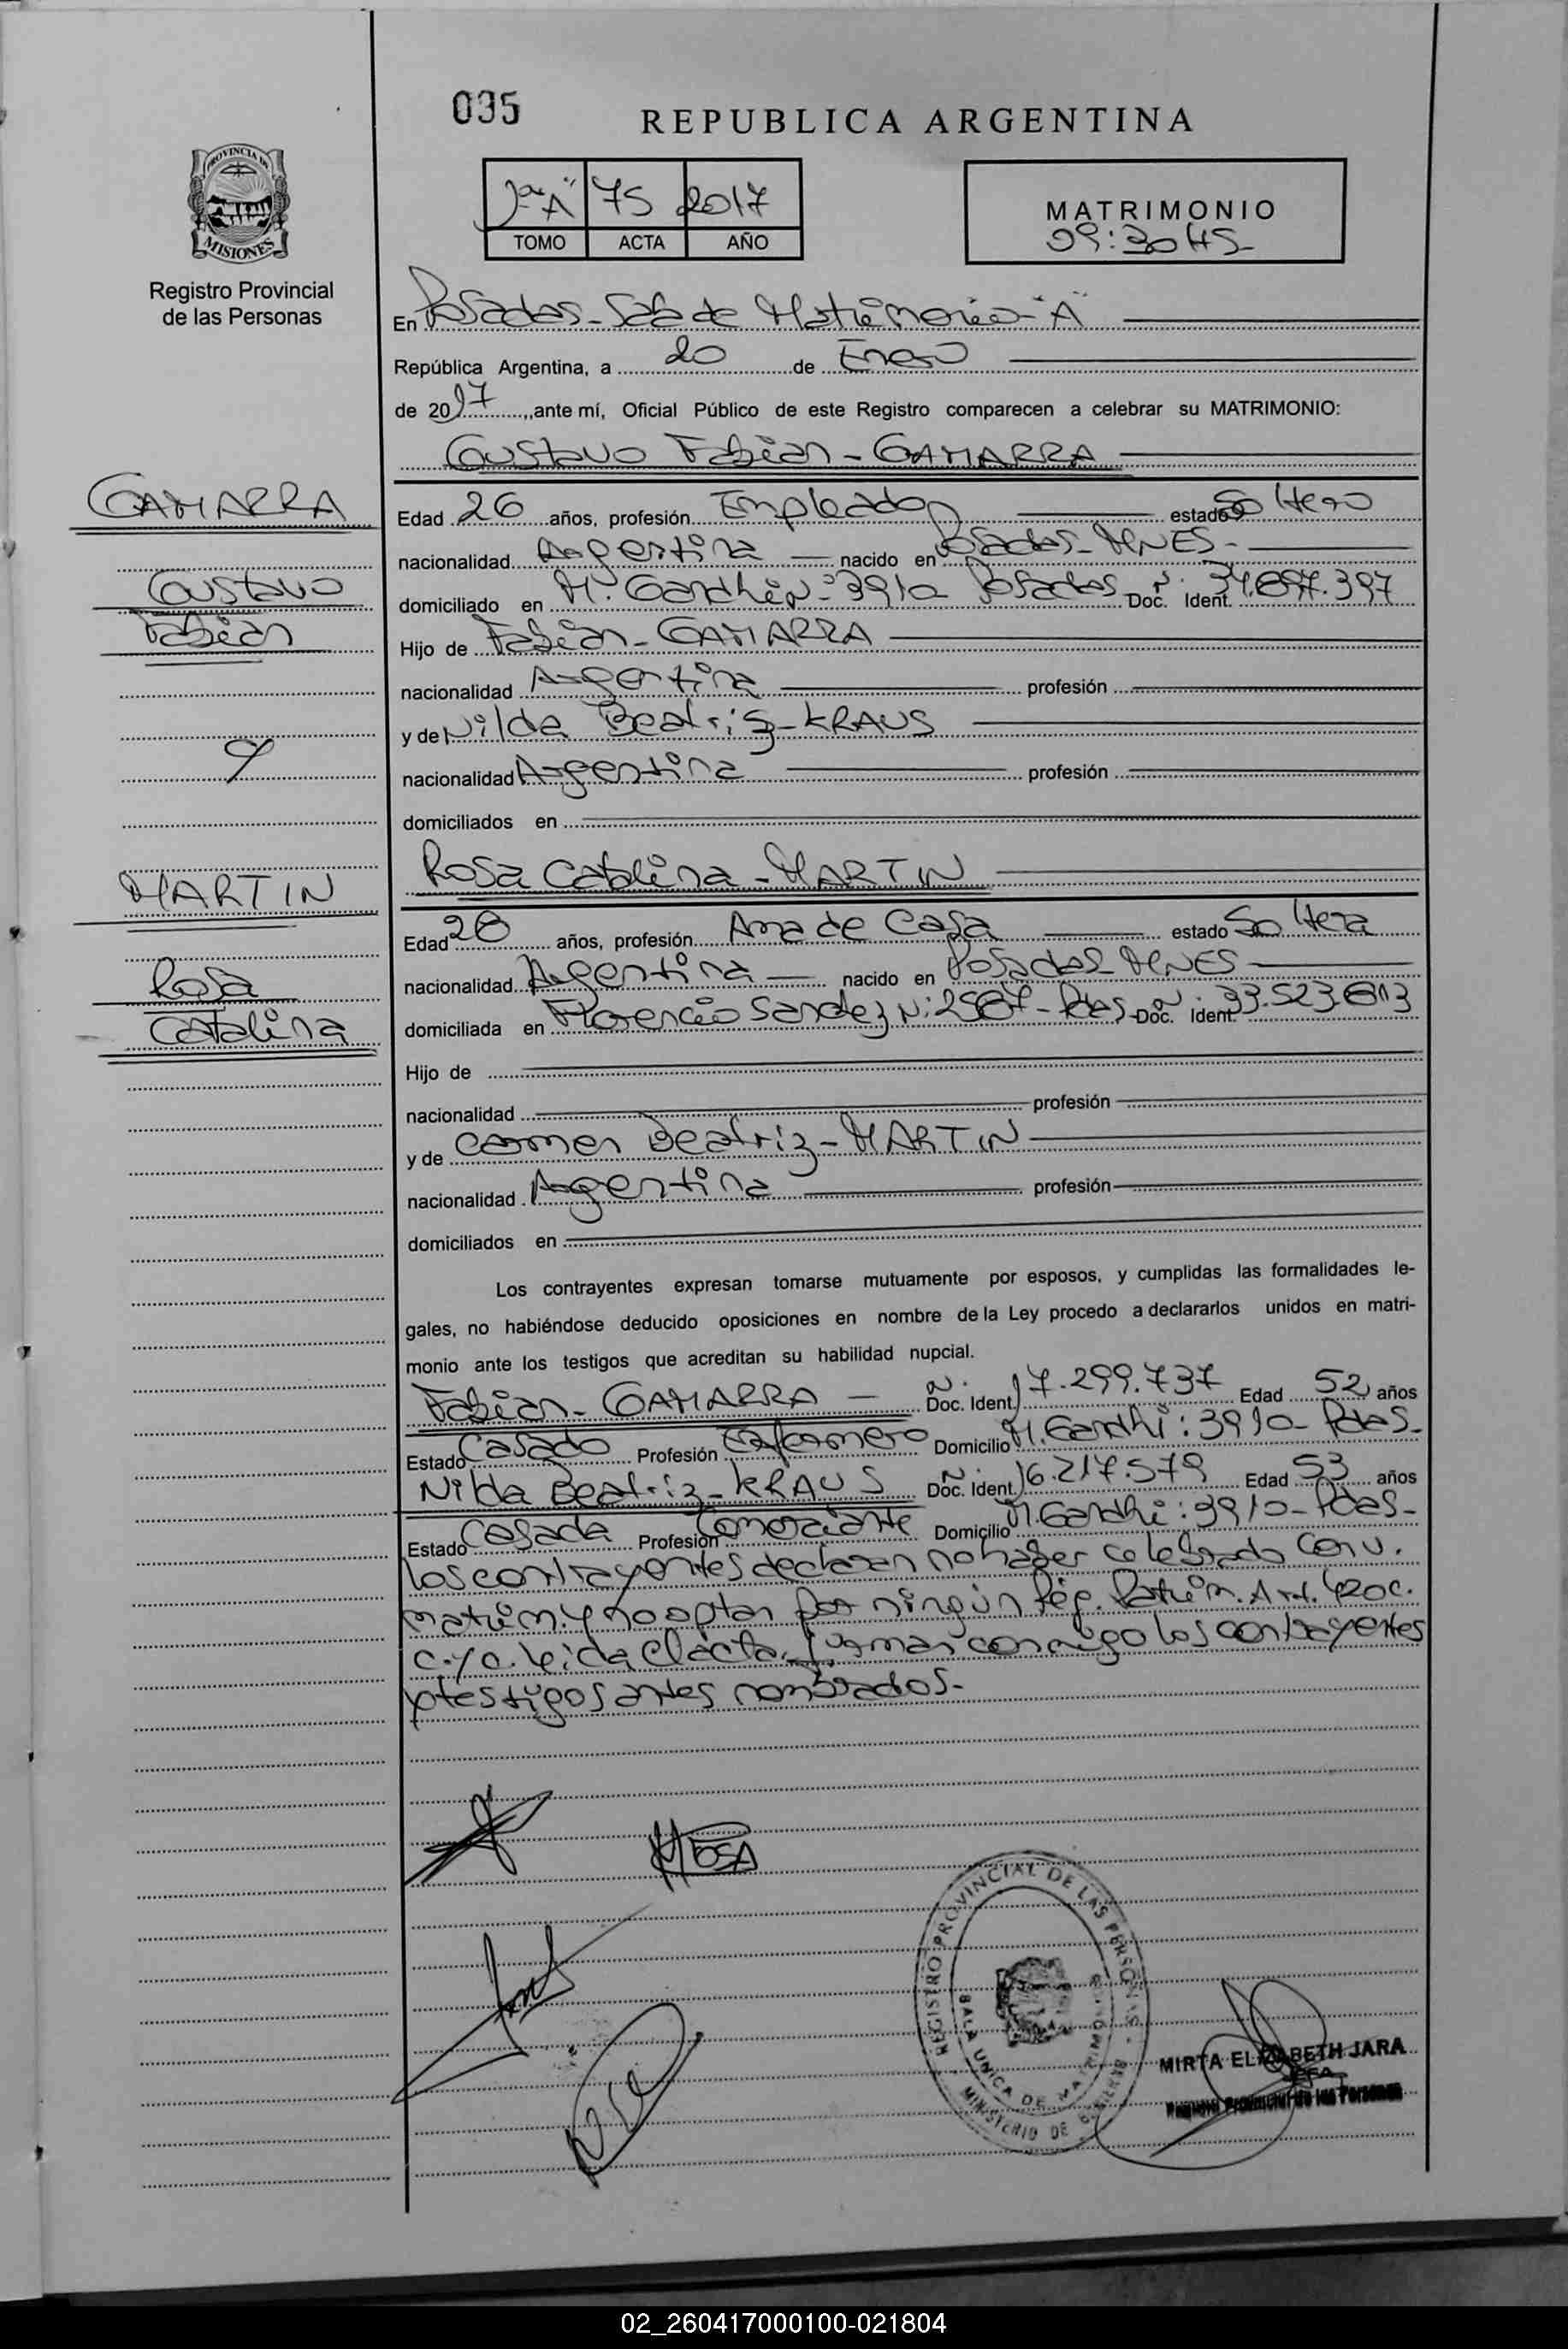 035
REPUBLICA ARGENTINA
PROVINCIA DE
MISIONES
Registro Provincial
de las Personas
"A" 75 2017
TOMO ACTA AÑO
MATRIMONIO
09:30 HS-
En Posadas-Sala de Matrimonio-"A"
República Argentina, a 20 de Enero
de 2017, ante mí, Oficial Público de este Registro comparecen a celebrar su MATRIMONIO:
Gustavo Fabián-GAMARRA
GAMARRA
Gustavo
Fabián
y
MARTIN
Rosa
Catalina
Edad 26 años, profesión Empleado estado Soltero
nacionalidad Argentina nacido en Posadas-MNES-
domiciliado en M. Gandhi N:3910 Posadas Doc. Ident. N: 34.897.397
Hijo de Fabián-GAMARRA
nacionalidad Argentina profesión
y de Nilda Beatriz-KRAUS
nacionalidad Argentina profesión
domiciliados en
Rosa Catalina-MARTIN
Edad 28 años, profesión Ama de Casa estado Soltera
nacionalidad Argentina nacido en Posadas-MNES
domiciliada en Florencio Sandez N:2587-Pdas- Doc. Ident. N: 33.523.813
Hijo de
nacionalidad profesión
y de Carmen Beatriz-MARTIN
nacionalidad Argentina profesión
domiciliados en
Los contrayentes expresan tomarse mutuamente por esposos, y cumplidas las formalidades le-
gales, no habiéndose deducido oposiciones en nombre de la Ley procedo a declararlos unidos en matri-
monio ante los testigos que acreditan su habilidad nupcial.
Fabián-GAMARRA Doc. Ident. N: 17.299.737 Edad 52 años
Estado Casado Profesión Enfermero Domicilio M. Gandhi:3910-Pdas-
Nilda Beatriz-KRAUS Doc. Ident. N: 16.217.579 Edad 53 años
Estado Casada Profesión Comerciante Domicilio M. Gandhi:3910-Pdas-
Los contrayentes declaran no haber celebrado Conv.
matrim. y no optar por ningún Rég. Patrim. Art. 420 c.
C. y C. Leída el acta, firman conmigo los contrayentes
y testigos antes nombrados-
REGISTRO PROVINCIAL DE LAS PERSONAS
SALA UNICA DE MATRIMONIOS
MINISTERIO DE GOBIERNO
MIRTA ELIZABETH JARA
JEFA
Registro Provincial de las Personas
02_260417000100-021804